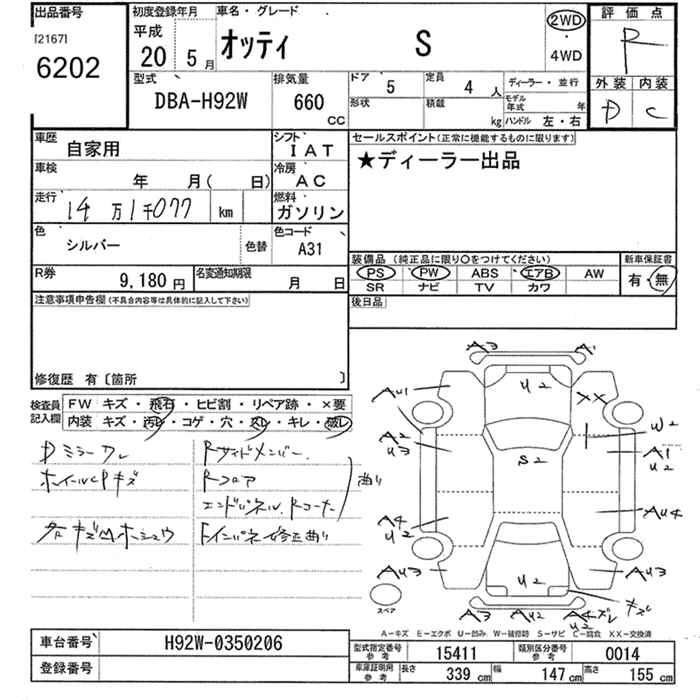 出品番号
[2167]
6202
初度登録年月
平成
20 5月
車名・グレード
オッティ S
2WD
・
4WD
評価点
R
外装 内装
D C
型式
DBA-H92W
排気量
660 CC
ドア 5
定員 4 人
形状
積載 kg
ディーラー・並行
モデル年式 年
ハンドル 左・右
車歴 自家用
シフト IAT
車検 年 月( 日)
冷房 AC
走行 14万1千077 km
燃料 ガソリン
色 シルバー 色替
色コード A31
R券 9,180 円
名変通知期限 月 日
セールスポイント(正常に機能するものに限ります)
★ディーラー出品
装備品(純正品に限り○をつけてください)
PS PW ABS エアB AW
SR ナビ TV カワ
新車保証書
有・無
後日品
注意事項申告欄(不具合内容等は具体的に記入して下さい)
修復歴 有〔箇所 〕
検査員記入欄
FW キズ・飛石・ヒビ割・リペア跡・×要
内装 キズ・汚レ・コゲ・穴・スレ・キレ・破レ
Dミラーワレ
ホイールCPキズ
Rサイドメンバー
Rフロア
エンドパネル Rコーナー
曲り
Fインパネ修正曲り
A3 A1
U2
AU1 XX
W2
A2
U3
A1
U2
S2
A4
U2
AU4
AU3 AU3
U2
キズレ
A3 AU2 A4ズレ
U2
スペア
A－キズ E－エクボ U－凹み W－補修跡 S－サビ C－腐食 XX－交換済
車台番号 H92W-0350206
登録番号
型式指定番号 参考 15411
類別区分番号 参考 0014
車庫証明用 参考 長さ 339 cm 幅 147 cm 高さ 155 cm